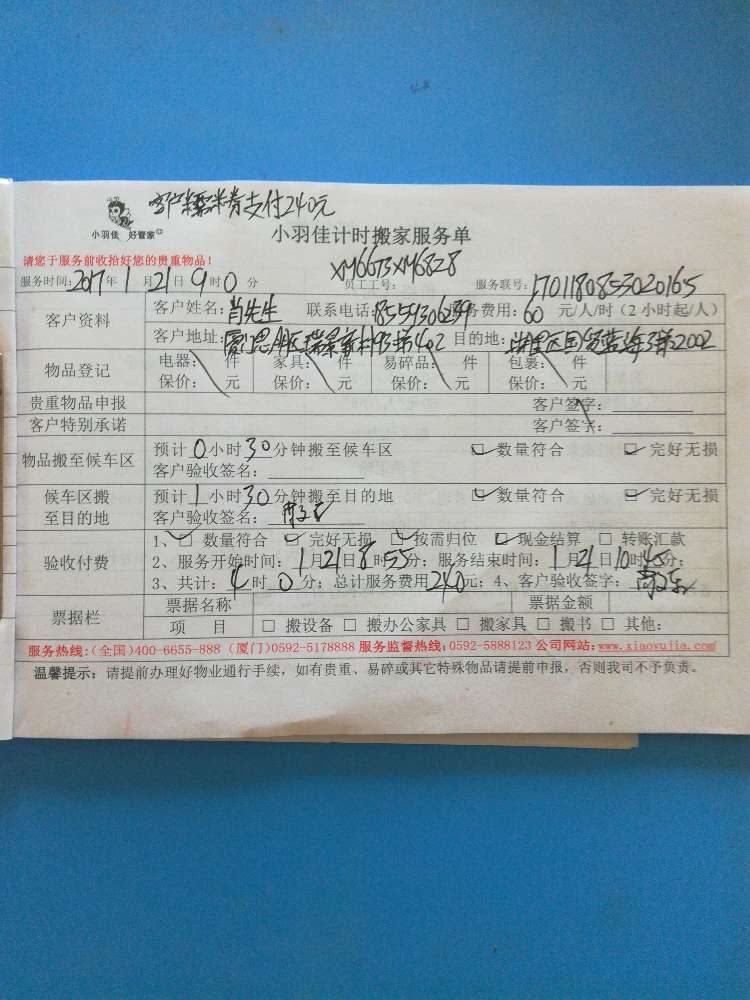 客户糯米券支付240元
小羽佳 好管家
小羽佳计时搬家服务单
请您于服务前收拾好您的贵重物品!
XM6673XM6828
服务时间: 2017年1月21日9时0分 员工工号: 服务联号: 1701180853020165
客户资料
客户姓名: 肖先生 联系电话: 服务费用: 60 元/人/时 (2 小时起/人)
客户地址: 厦门思明区瑞景新村93梯402 目的地: 湖里区国贸蓝海3梯2002
物品登记
电器: 件 家具: 件 易碎品: 件 包裹: 件
保价: 元 保价: 元 保价: 元 保价: 元
贵重物品申报 客户签字:
客户特别承诺 客户签字:
物品搬至候车区
预计0小时30分钟搬至候车区 ☑ 数量符合 ☑ 完好无损
客户验收签名:
候车区搬至目的地
预计1小时30分钟搬至目的地 ☑ 数量符合 ☑ 完好无损
客户验收签名:
验收付费
1、☑ 数量符合 ☑ 完好无损 ☑ 按需归位 ☑ 现金结算 □ 转账汇款
2、服务开始时间: 1月21日8时55分; 服务结束时间: 1月21日10时45分;
3、共计: 4时0分; 总计服务费用240元; 4、客户验收签字:
票据栏
票据名称 票据金额
项 目 □ 搬设备 □ 搬办公家具 □ 搬家具 □ 搬书 □ 其他:
服务热线:(全国)400-6655-888 (厦门)0592-5178888 服务监督热线:0592-5888123 公司网站:www.xiaoyujia.com
温馨提示: 请提前办理好物业通行手续, 如有贵重、易碎或其它特殊物品请提前申报, 否则我司不予负责。